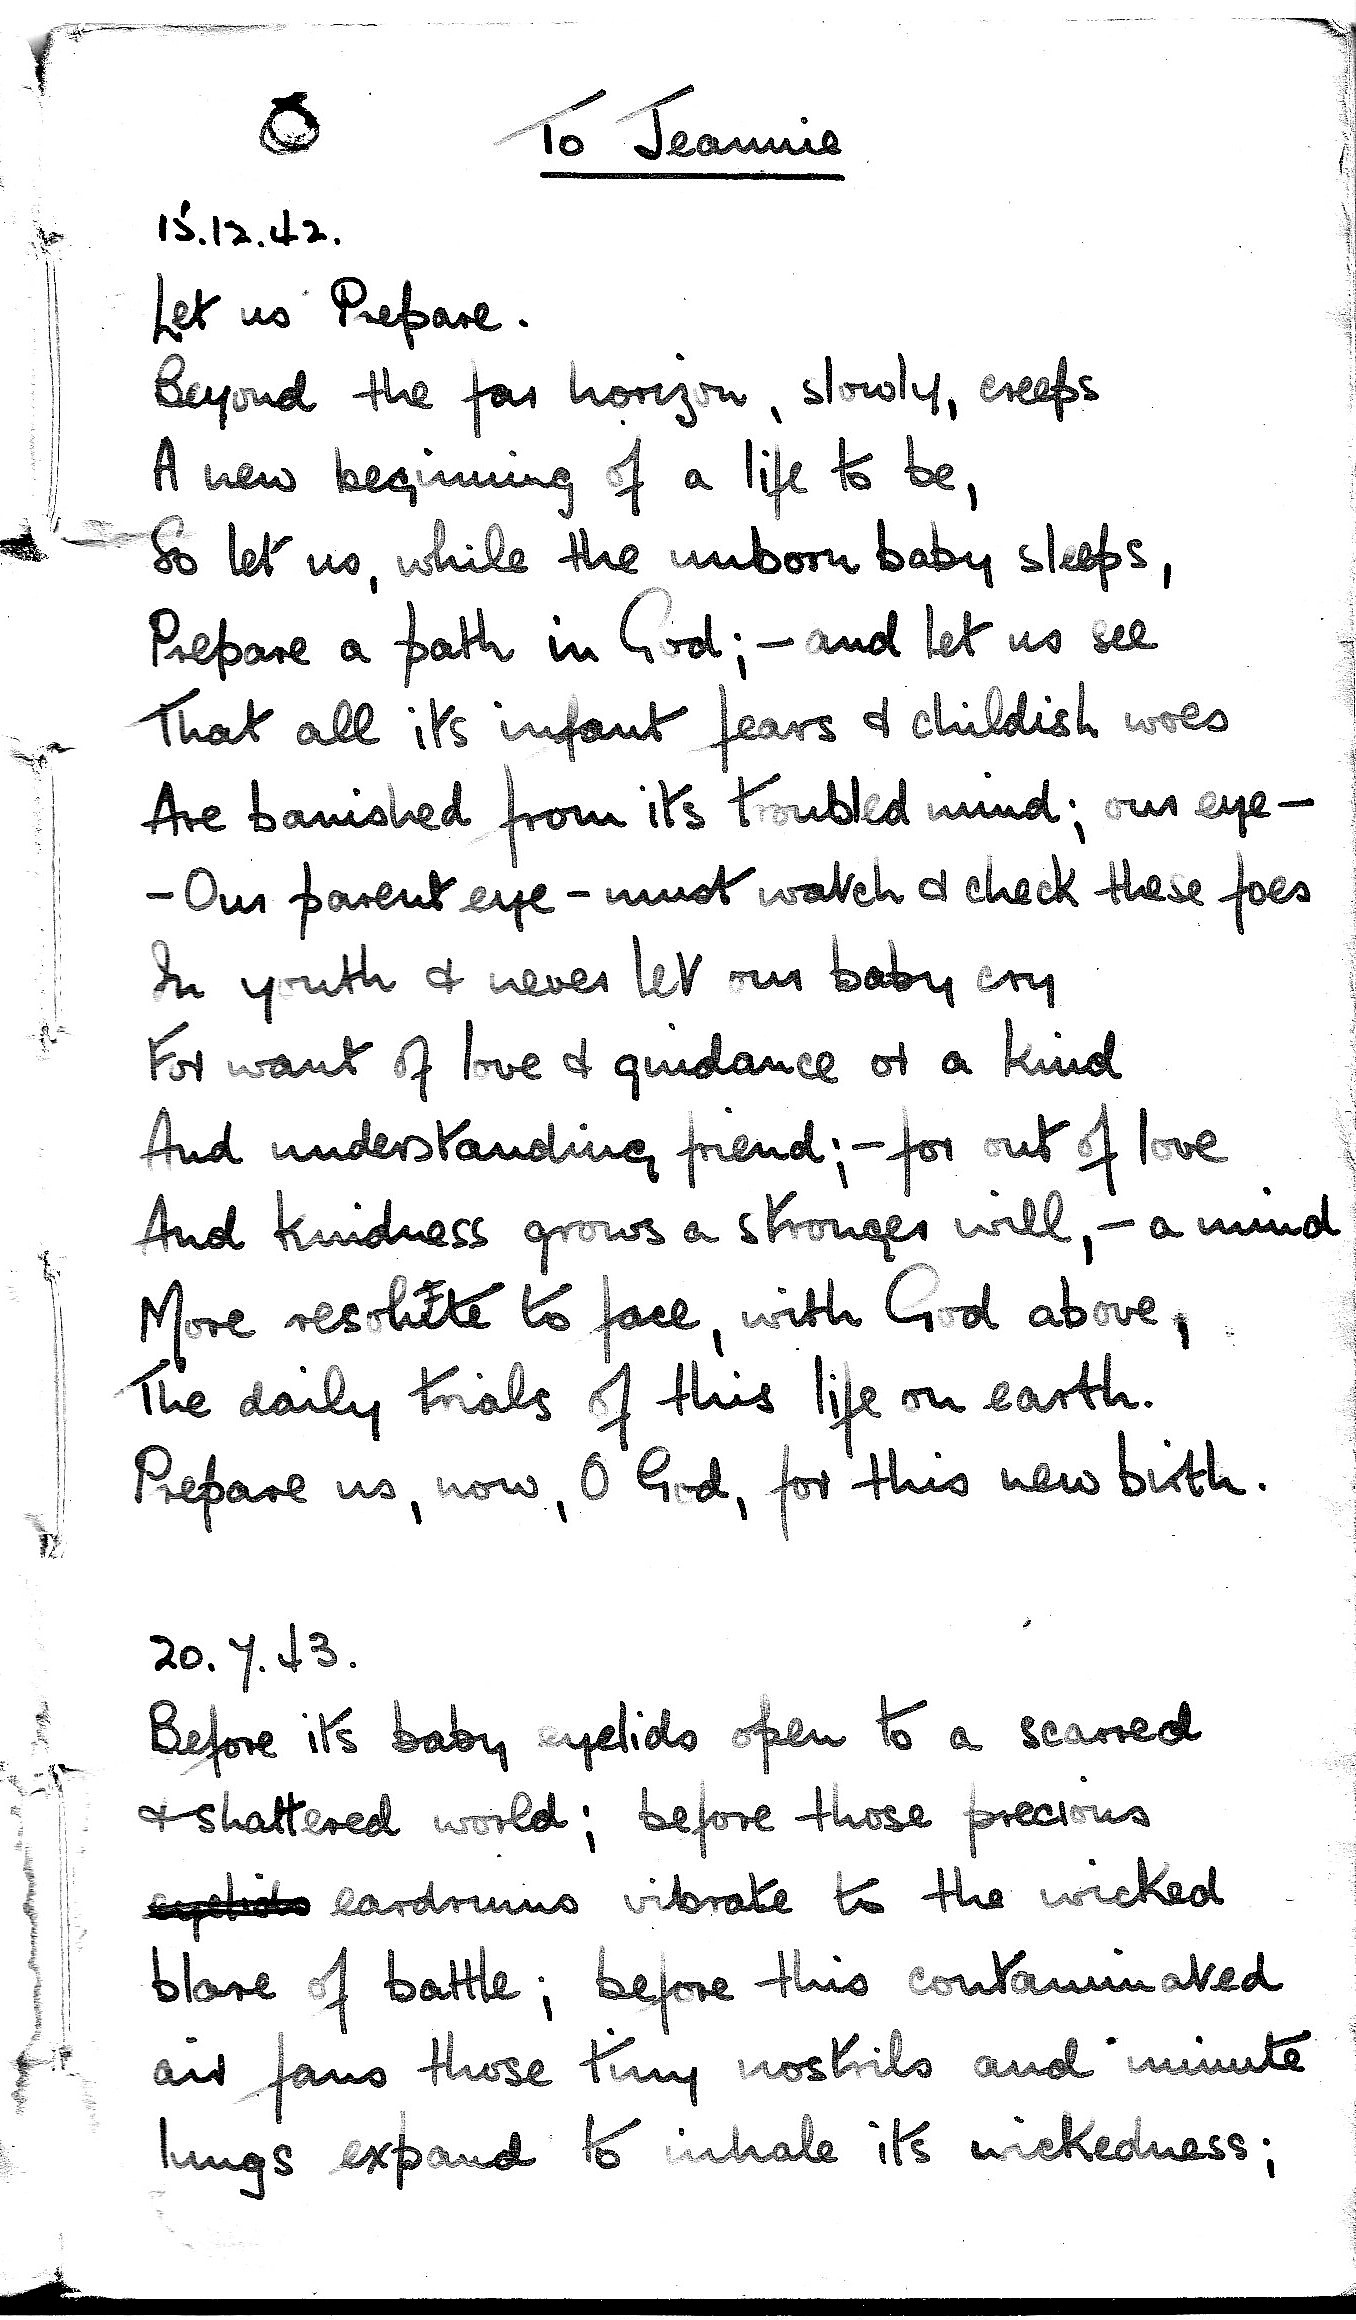 To Jeannie
15.12.42.
Let us Prepare.
Beyond the far horizon, slowly, creeps
A new beginning of a life to be,
So let us, while the unborn baby sleeps,
Prepare a path in God; - and let us see
That all its infant fears & childish woes
Are banished from its troubled mind; our eye -
- Our parent eye - must watch & check these foes
In youth & never let our baby cry
For want of love & guidance or a kind
And understanding friend; - for out of love
And kindness grows a stronger will, - a mind
More resolute to face, with God above,
The daily trials of this life on earth.
Prepare us, now, O God, for this new birth.
20.7.43.
Before its baby eyelids open to a scarred
& shattered world; before those precious
eyelids eardrums vibrate to the wicked
blare of battle; before this contaminated
air fans those tiny nostrils and minute
lungs expand to inhale its wickedness;